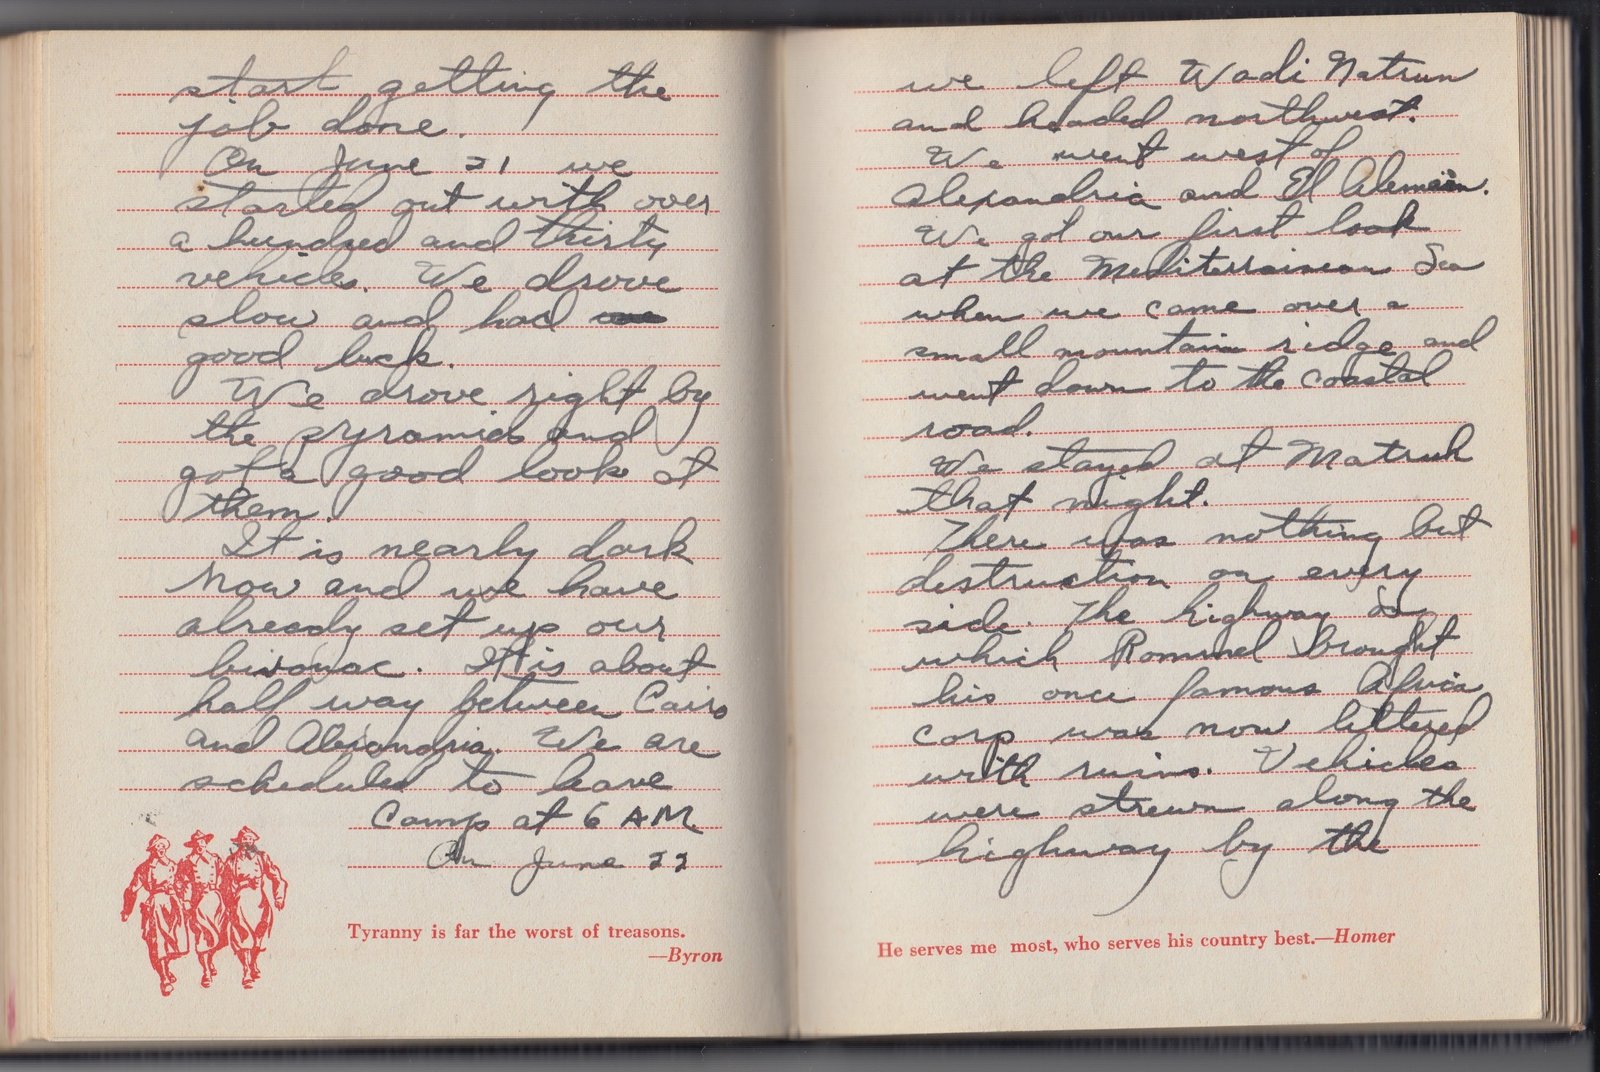 start getting the
job done.
On June 21 we
started out with over
a hundred and thirty
vehicles. We drove
slow and had
good luck.
We drove right by
the pyramids and
got a good look at
them.
It is nearly dark
now and we have
already set up our
bivouac. It is about
half way between Cairo
and Alexandria. We are
scheduled to leave
Camp at 6 AM
On June 22
Tyranny is far the worst of treasons.
—Byron
we left Wadi Natrun
and headed northwest.
We went west of
Alexandria and El Alemein.
We got our first look
at the Mediterrainean Sea
when we came over a
small mountain ridge and
went down to the coastal
road.
We stayed at Matruh
that night.
There was nothing but
destruction on every
side. The highway on
which Rommel brought
his once famous Africa
corp was now littered
with ruins. Vehicles
were strewn along the
highway by the
He serves me most, who serves his country best.—Homer